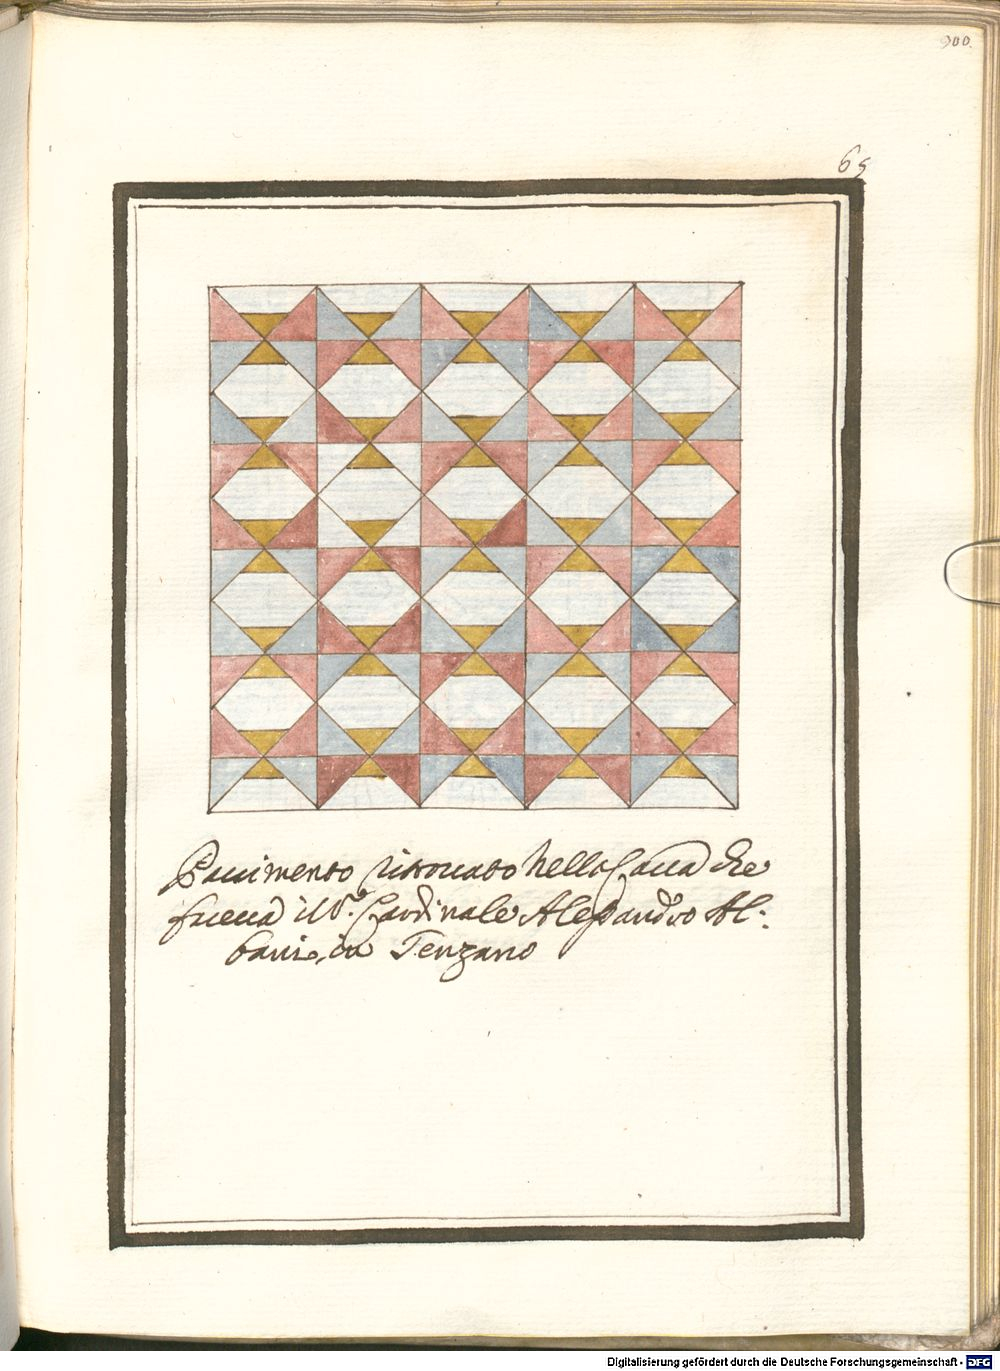 900.
65
Pavimento ritrovato nella Cava che
faceva il Sr. Cardinale Alessandro Al:
bani, in Genzano
Digitalisierung gefördert durch die Deutsche Forschungsgemeinschaft - DFG